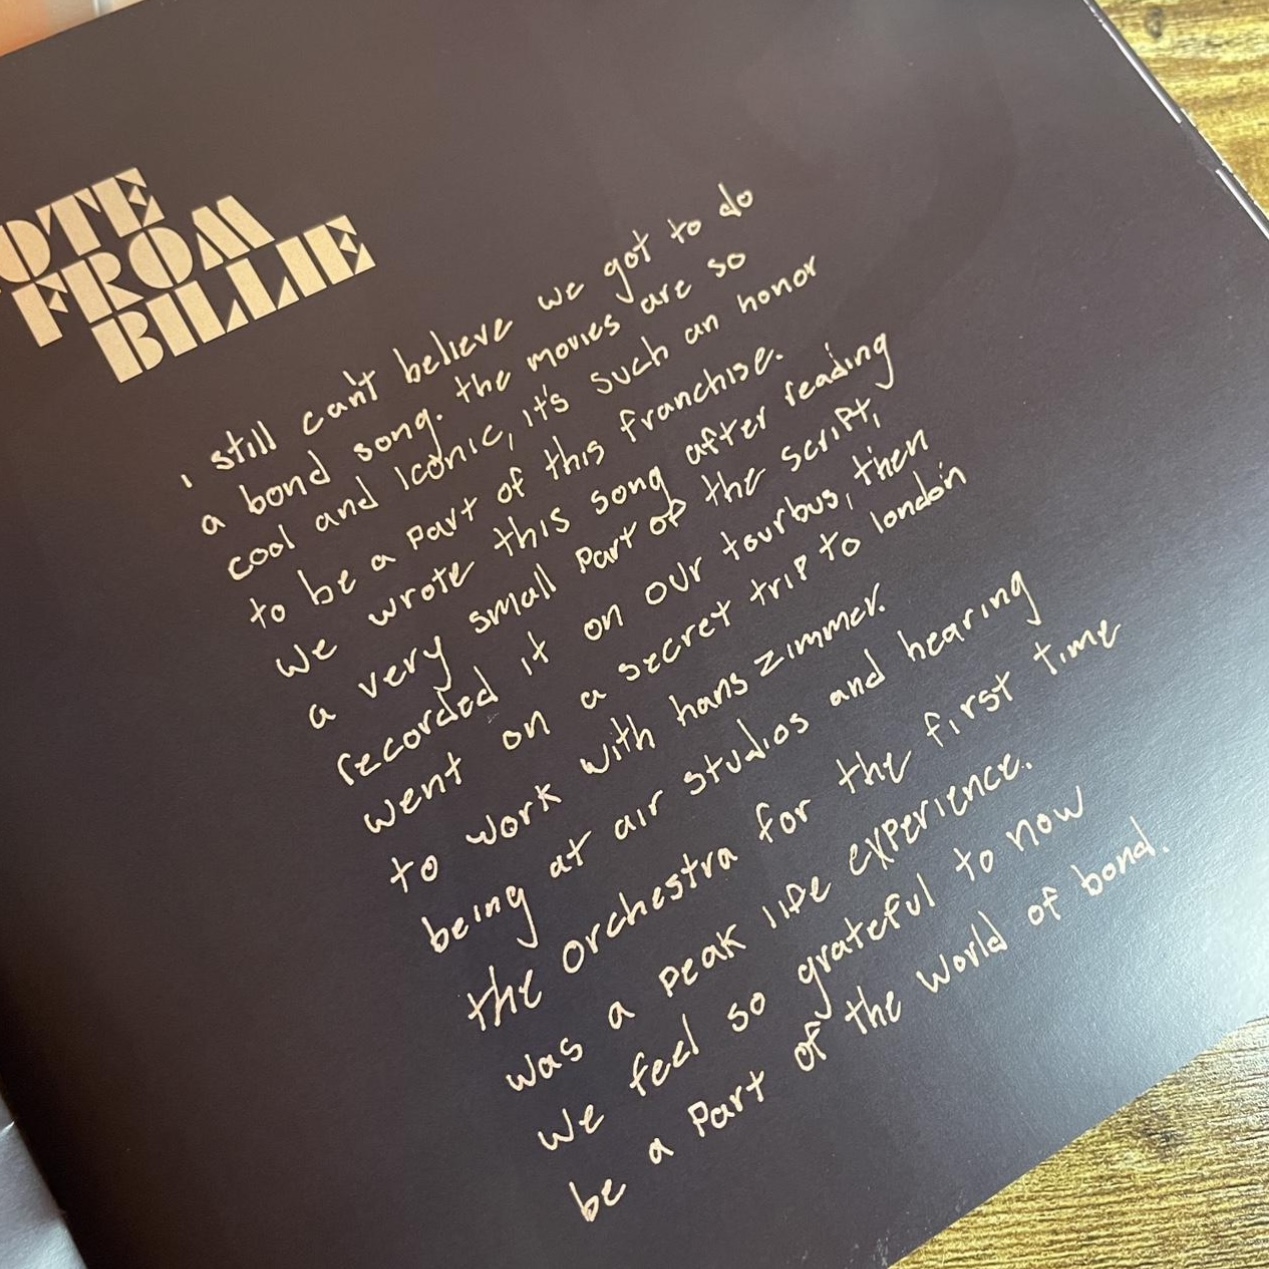 OTE
FROM
BILLIE
i still can't believe we got to do
a bond song. the movies are so
cool and iconic, it's such an honor
to be a part of this franchise.
we wrote this song after reading
a very small part of the script,
recorded it on our tourbus, then
went on a secret trip to london
to work with hans zimmer.
being at air studios and hearing
the orchestra for the first time
was a peak life experience.
we feel so grateful to now
be a part of the world of bond.